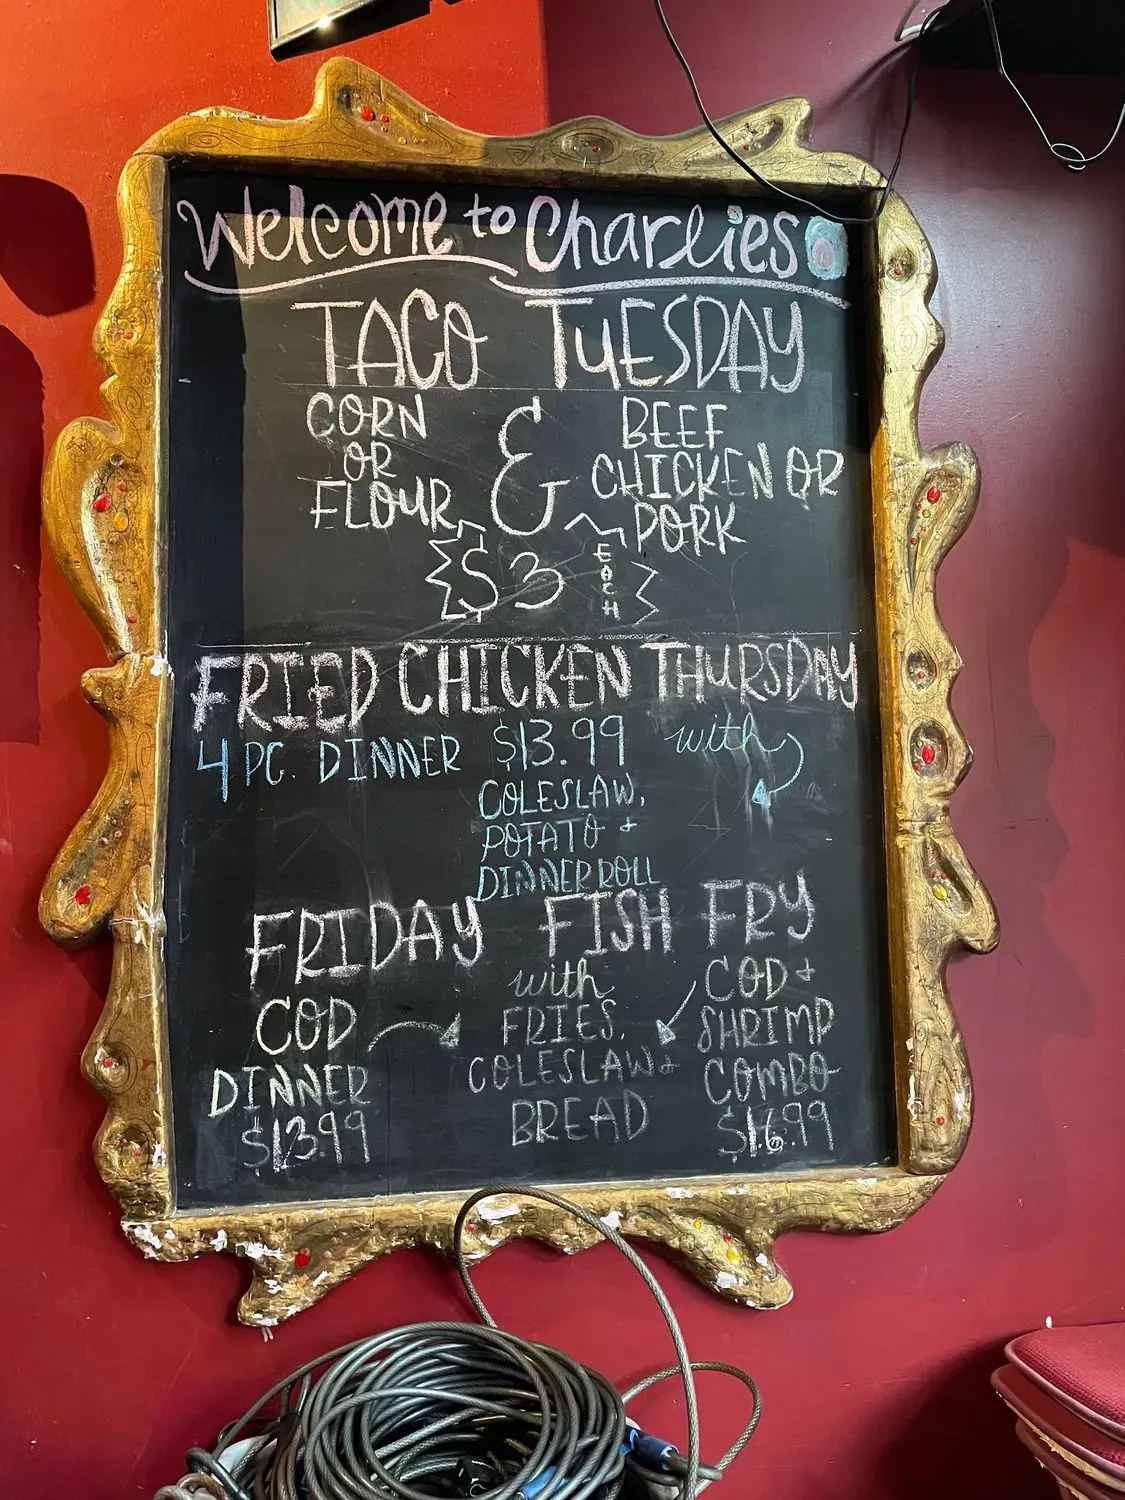 Welcome to Charlies
TACO TUESDAY
CORN
OR
FLOUR
&
BEEF
CHICKEN OR
PORK
$3 EACH
FRIED CHICKEN THURSDAY
4 PC. DINNER $13.99 with
COLESLAW,
POTATO &
DINNER ROLL
FRIDAY FISH FRY
COD
DINNER
$13.99
with
FRIES,
COLESLAW &
BREAD
COD &
SHRIMP
COMBO
$16.99